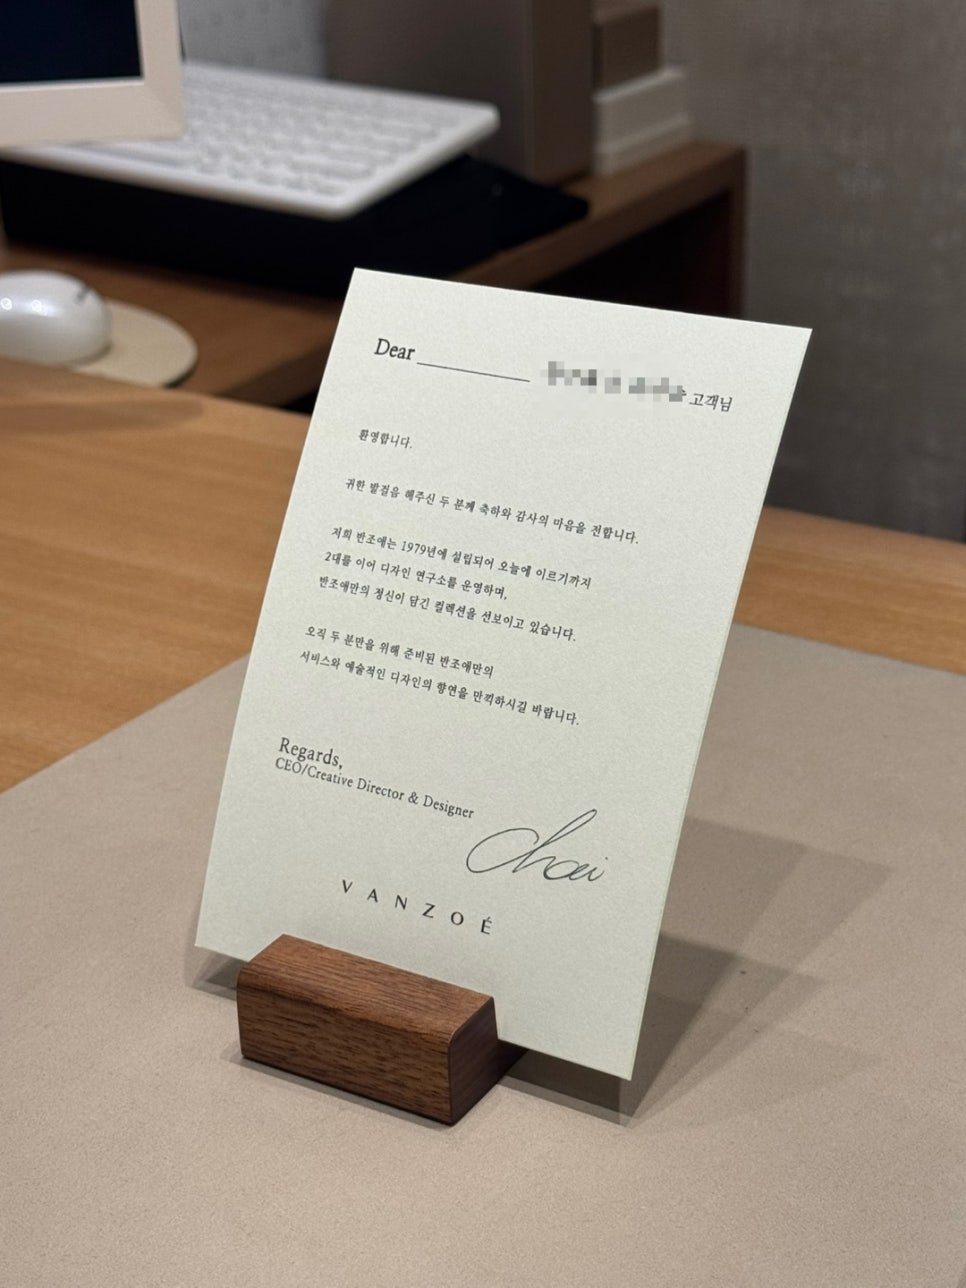 Dear
고객님
환영합니다.
귀한 발걸음 해주신 두 분께 축하와 감사의 마음을 전합니다.
저희 반조애는 1979년에 설립되어 오늘에 이르기까지
2대를 이어 디자인 연구소를 운영하며,
반조애만의 정신이 담긴 컬렉션을 선보이고 있습니다.
오직 두 분만을 위해 준비된 반조애만의
서비스와 예술적인 디자인의 향연을 만끽하시길 바랍니다.
Regards,
CEO/Creative Director & Designer
Choi
VANZOÉ